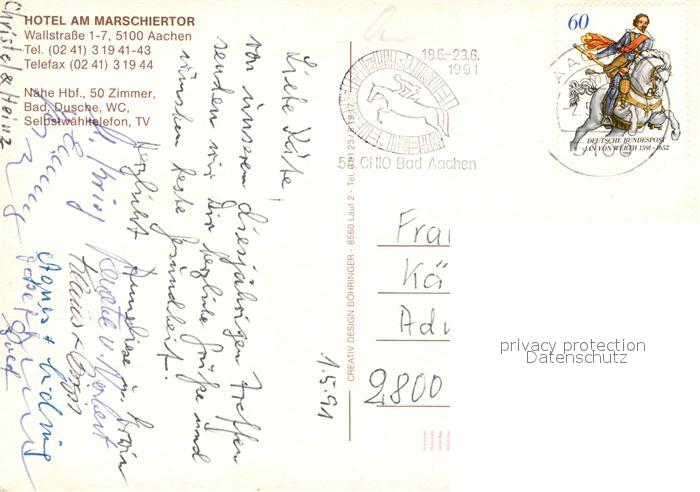 HOTEL AM MARSCHIERTOR
Wallstraße 1-7, 5100 Aachen
Tel. (02 41) 3 19 41-43
Telefax (02 41) 3 19 44
Nähe Hbf., 50 Zimmer,
Bad, Dusche, WC,
Selbstwähltelefon, TV
Christel & Heinz
1.5.91
Liebe Käte,
von unserem diesjährigen Treffen
senden wir Dir herzliche Grüße und
wünschen beste Gesundheit.
Herzlichst Anneliese u. Erwin
Renate u. Norbert
Klaus +
Agnes + Ludwig
CREATIV DESIGN BÖHRINGER · 8560 Lauf 2 · Tel. 09123
18.6.-23.6.
1991
CHIO Bad Aachen
60
DEUTSCHE BUNDESPOST
JAN VON WERTH 1591-1652
Frau
Kä
Ad
2800
privacy protection
Datenschutz